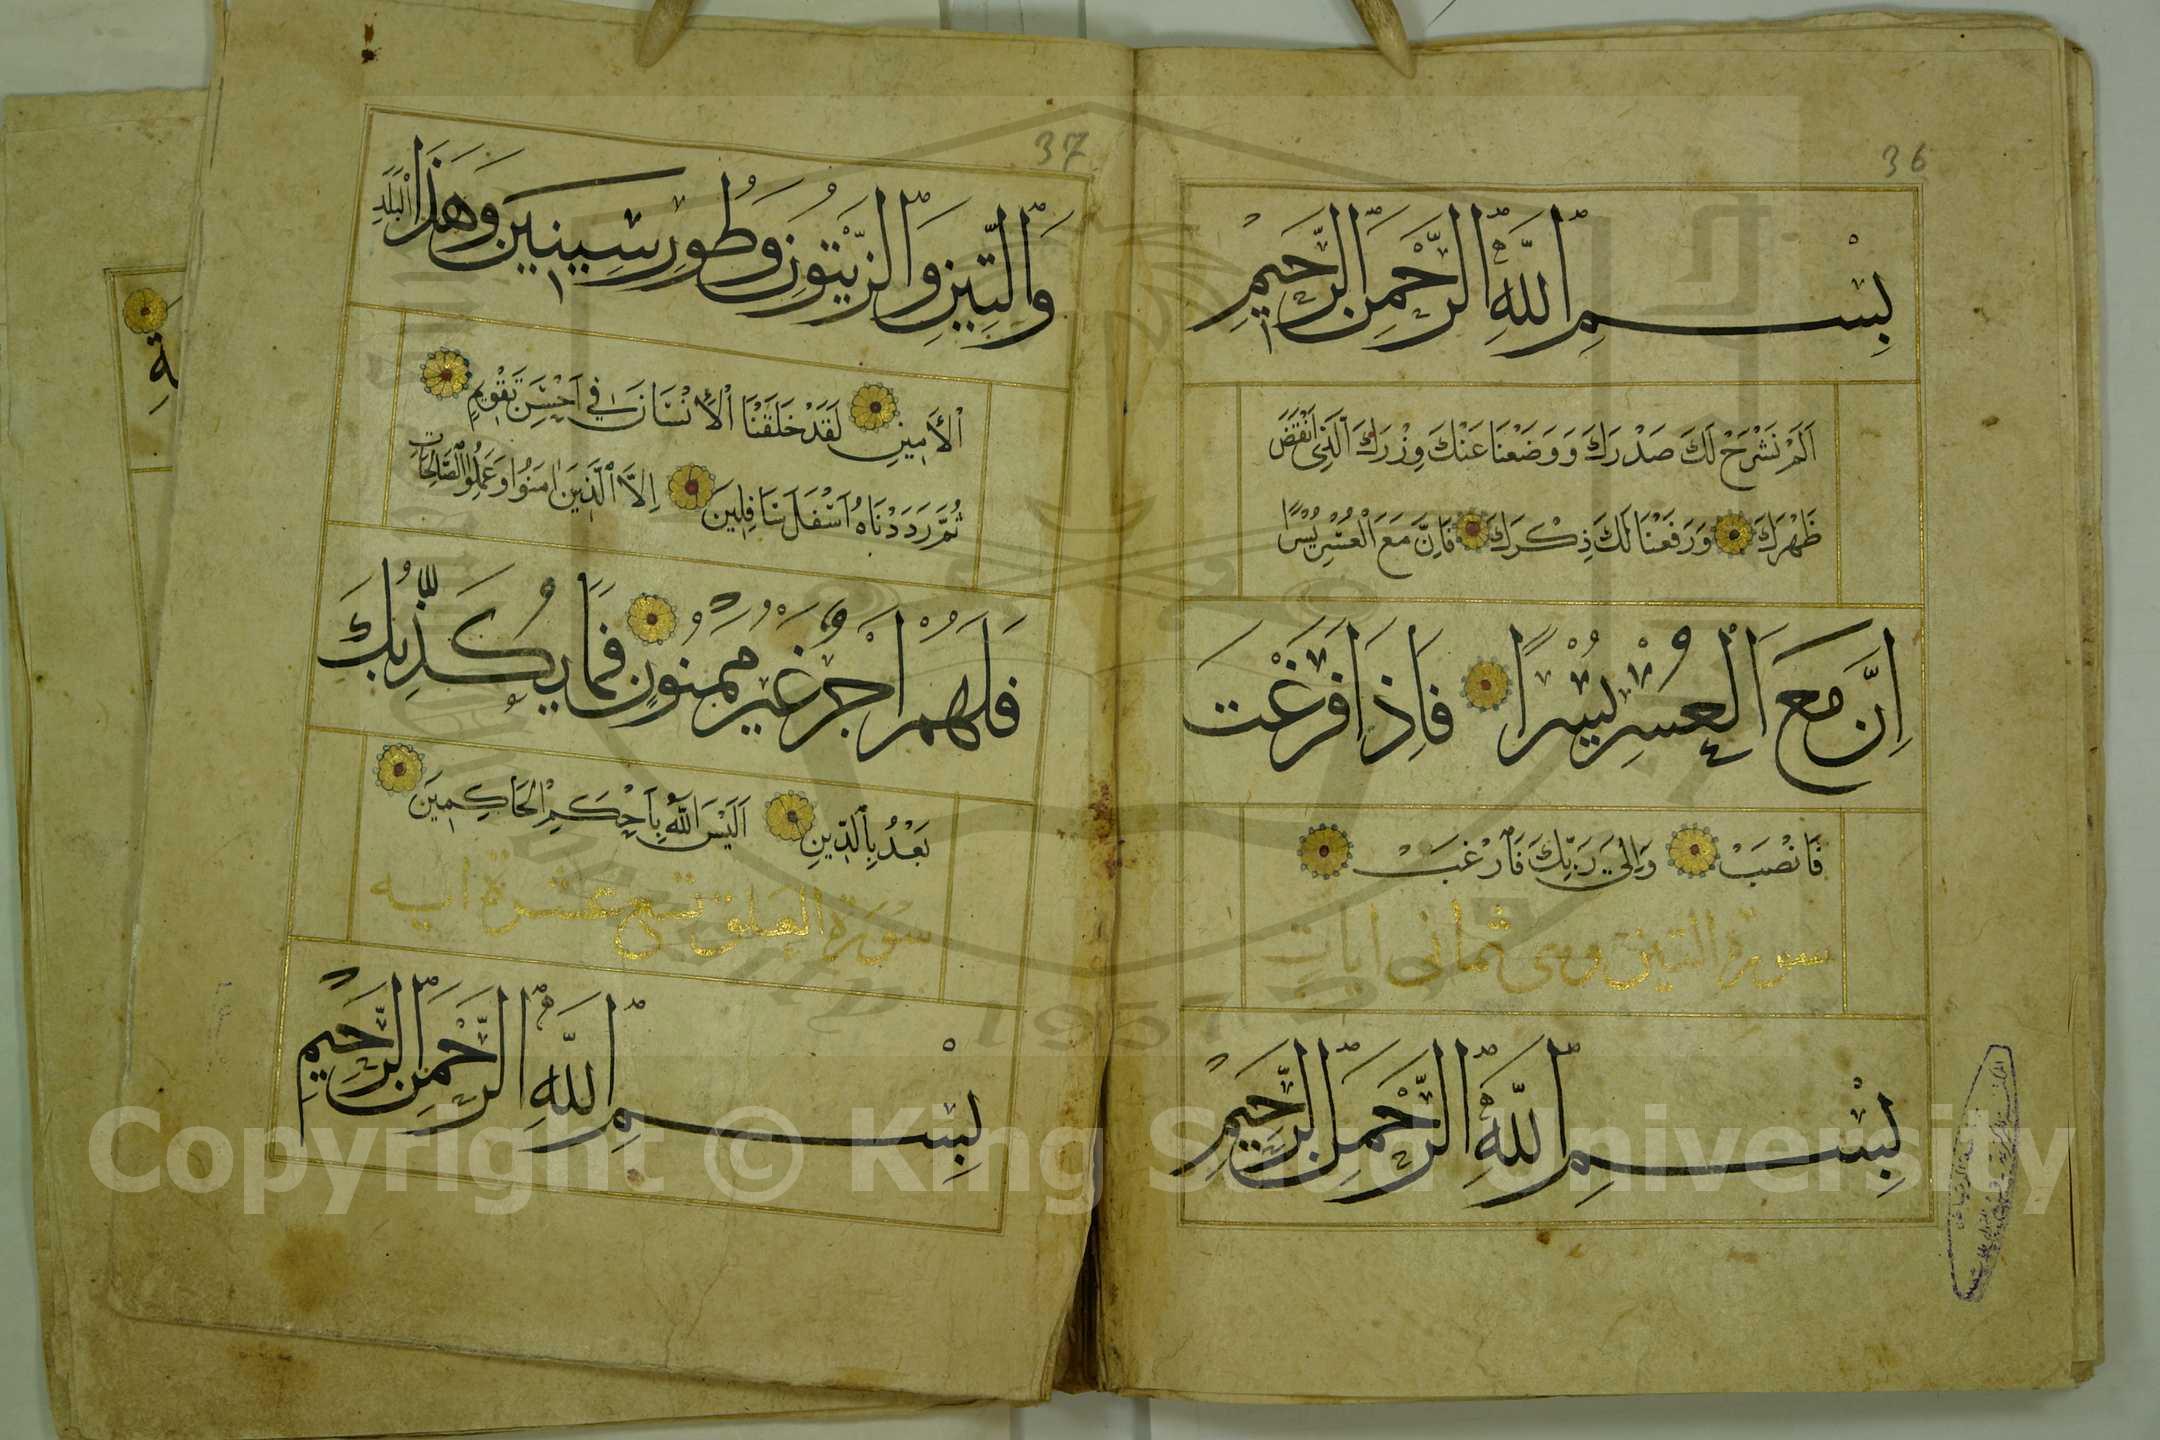 36
بِسْمِ اللَّهِ الرَّحْمَنِ الرَّحِيمِ
اَلَمْ نَشْرَحْ لَكَ صَدْرَكَ وَوَضَعْنَا عَنْكَ وِزْرَكَ الَّذِي اَنْقَضَ
ظَهْرَكَ وَرَفَعْنَا لَكَ ذِكْرَكَ فَاِنَّ مَعَ الْعُسْرِ يُسْرًا
اِنَّ مَعَ الْعُسْرِ يُسْرًا فَاِذَا فَرَغْتَ
فَانْصَبْ وَاِلَى رَبِّكَ فَارْغَبْ
سورة التين وهى ثمانى ايات
بِسْمِ اللَّهِ الرَّحْمَنِ الرَّحِيمِ
37
وَالتِّينِ وَالزَّيْتُونِ وَطُورِ سِينِينَ وَهَذَا الْبَلَدِ
الْأَمِينِ لَقَدْ خَلَقْنَا الْأِنْسَانَ فِي اَحْسَنِ تَقْوِيمٍ
ثُمَّ رَدَدْنَاهُ اَسْفَلَ سَافِلِينَ اِلَّا الَّذِينَ اٰمَنُوا وَعَمِلُوا الصَّالِحَاتِ
فَلَهُمْ اَجْرٌ غَيْرُ مَمْنُونٍ فَمَا يُكَذِّبُكَ
بَعْدُ بِالدِّينِ اَلَيْسَ اللَّهُ بِاَحْكَمِ الْحَاكِمِينَ
سورة العلق تسع عشرة اية
بِسْمِ اللَّهِ الرَّحْمَنِ الرَّحِيمِ
Copyright © King Saud University
1957